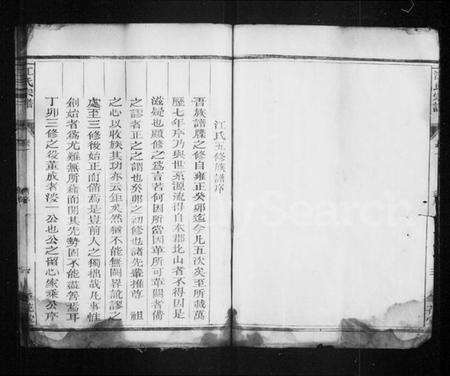 江氏五修族譜序
吾族譜牒之修自雍正癸卯迄今凡五次矣至所載萬
歷七年序乃與世系源流得自本郡北山者不得因是
滋疑也顧修之為言若何因所當因革所可革闕者備
之誤者正之之謂也癸卯之初修也諸先輩推尊 祖
之心以收族其功亦云鉅矣然猶不能無闕畧訛謬之
處至三修後始正而備焉是豈前人之獨拙哉凡事惟
創始者為尤難無所藉而開其先勢固不能盡善焉耳
丁卯三修之役董成者浚一公也公之留心家乘
江氏宗譜